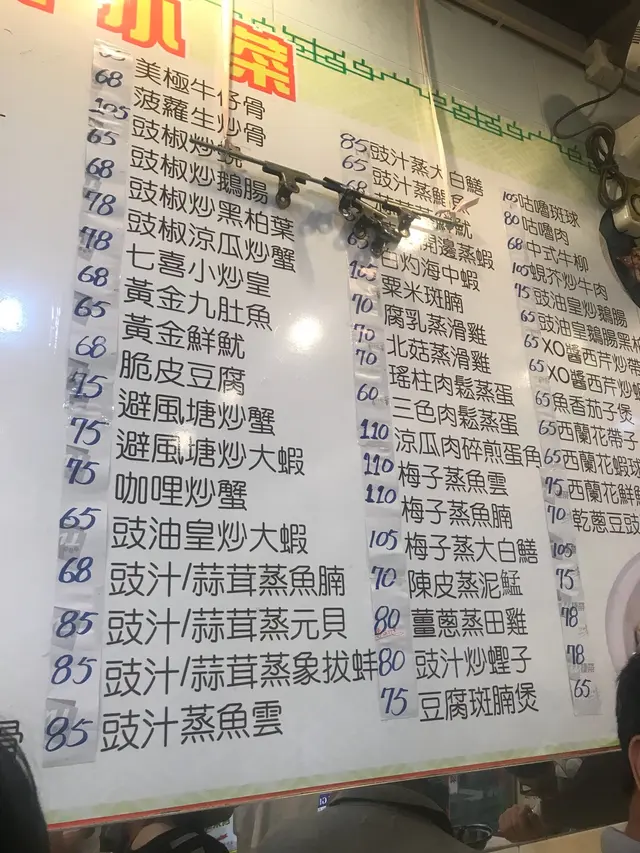 小菜
美極牛仔骨
68 菠蘿生炒骨
105 豉椒炒
65 豉椒炒鵝腸
68 豉椒炒黑柏葉
78 豉椒涼瓜炒蟹
78 七喜小炒皇
68 黃金九肚魚
65 黃金鮮魷
68 脆皮豆腐
75 避風塘炒蟹
75 避風塘炒大蝦
75 咖哩炒蟹
65 豉油皇炒大蝦
68 豉汁/蒜茸蒸魚腩
85 豉汁/蒜茸蒸元貝
85 豉汁/蒜茸蒸象拔蚌
85 豉汁蒸魚雲
85 豉汁蒸大白鱔
65 豉汁蒸
68 魷
開邊蒸蝦
白灼海中蝦
105 粟米斑腩
70 腐乳蒸滑雞
70 北菇蒸滑雞
70 瑤柱肉鬆蒸蛋
60 三色肉鬆蒸蛋
110 涼瓜肉碎煎蛋角
110 梅子蒸魚雲
110 梅子蒸魚腩
105 梅子蒸大白鱔
70 陳皮蒸泥鯭
80 薑蔥蒸田雞
80 豉汁炒蟶子
75 豆腐斑腩煲
105 咕嚕斑球
80 咕嚕肉
68 中式牛柳
105 蜆芥炒牛肉
75 豉油皇炒鵝腸
65 豉油皇鵝腸黑柏
65 XO醬西芹炒帶
65 XO醬西芹炒
65 魚香茄子煲
65 西蘭花帶子
65 西蘭花蝦球
75 西蘭花鮮魷
70 乾蔥豆豉
105
75
78
78
65
骨